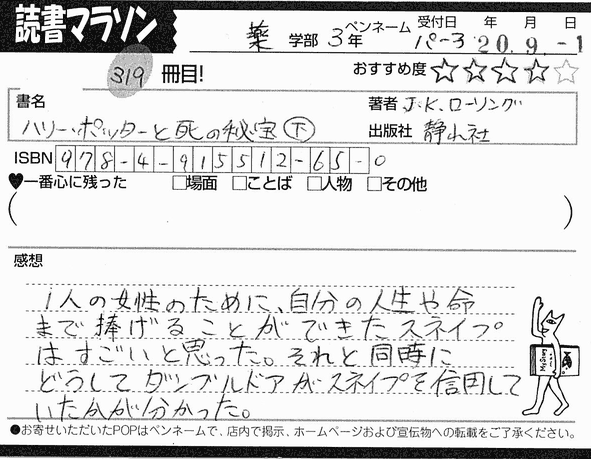 読書マラソン
薬 学部 3年 ペンネーム パ-子 受付日 年 月 日 20.9.-1
319 冊目! おすすめ度 ☆☆☆☆☆
書名 著者 J・K.ローリング
ハリー・ポッターと死の秘宝 下 出版社 静山社
ISBN 978-4-915512-65-0
♥一番心に残った □場面 □ことば □人物 □その他
( )
感想
1人の女性のために、自分の人生や命
まで捧げることができたスネイプ
はすごいと思った。それと同時に
どうしてダンブルドアがスネイプを信用して
いたかが分かった。
●お寄せいただいたPOPはペンネームで、店内で掲示、ホームページおよび宣伝物への転載をご了承ください。